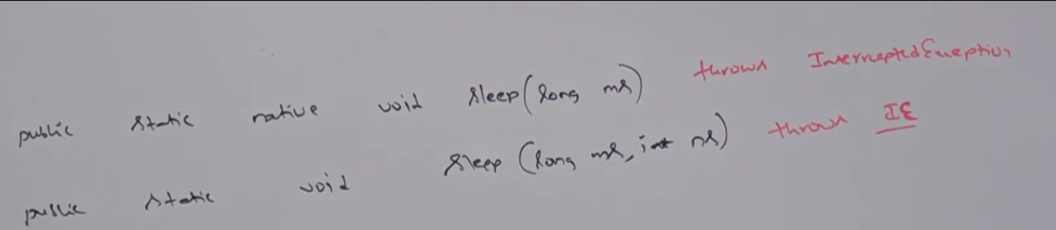 public static native void sleep(long ms) throws InterruptedException
public static void sleep (long ms, int ns) throws IE